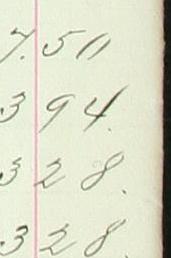 7.50
3 94.
3 28.
3 28.